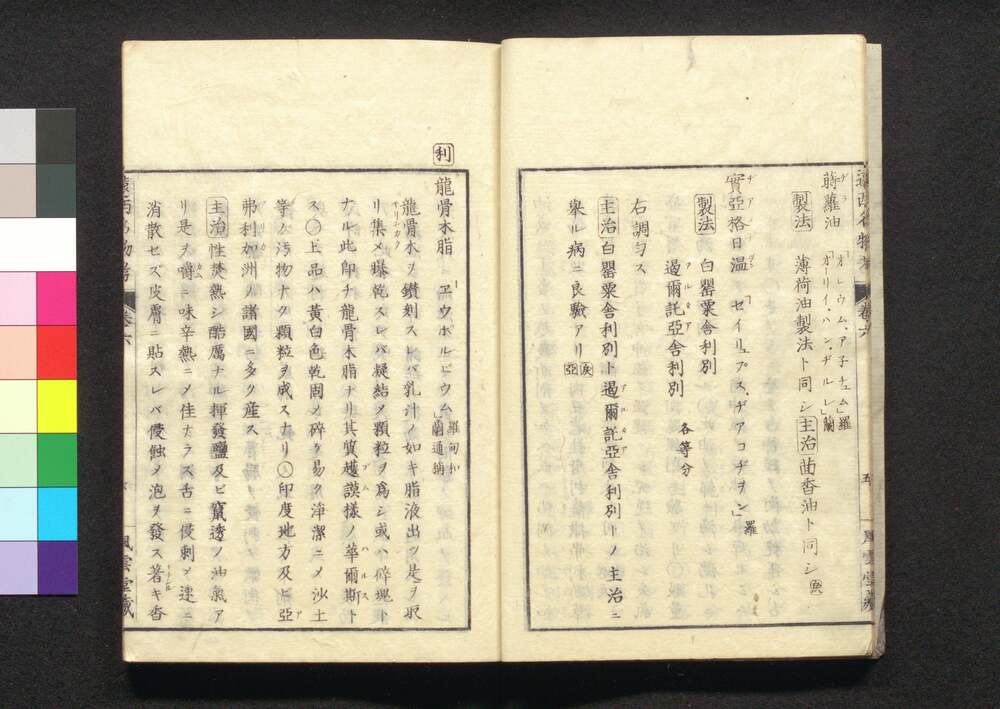 蒔蘿油 「オーレウム、アネチュム」羅 「オーリイ、ハン、ヂルレ」蘭
製法 薄荷油製法ト同シ 主治 茴香油ト同シ
實亞格日溫 「セイリュプス、ヂアコヂヲン」羅
製法 白罌粟舍利別
遏爾託亞舍利別 各等分
右調勻ス
主治 白罌粟舍利別ト遏爾託亞舍利別トノ主治ニ
擧ル病ニ良驗アリ
卷六
五
風雲堂藏
利
龍骨木脂 「エウホルビウム」羅甸和蘭通稱
龍骨木ヲ鑽刻スレバ乳汁ノ如キ脂液出ツ是ヲ取
リ集メ曝乾スレバ凝結ノ顆粒ヲ爲シ或ハ碎塊ト
ナル此即チ龍骨木脂ナリ其質護謨樣ノ華爾斯ト
ス○上品ハ黃白色乾固ノ碎ク易ク淨潔ニメ沙土
等ノ汚物ナク顆粒ヲ成スナリ○印度地方及ビ亞
弗利加洲ノ諸國ニ多ク産ス
主治 性焚熱シ酷厲ナル揮發鹽及ビ竄透ノ油氣ア
リ是ヲ嚼ニ味辛熱ニメ佳ナラズ舌ニ侵刺メ速ニ
消散セズ皮膚ニ貼スレバ侵蝕メ泡ヲ發ス著キ香
卷六
風雲堂藏